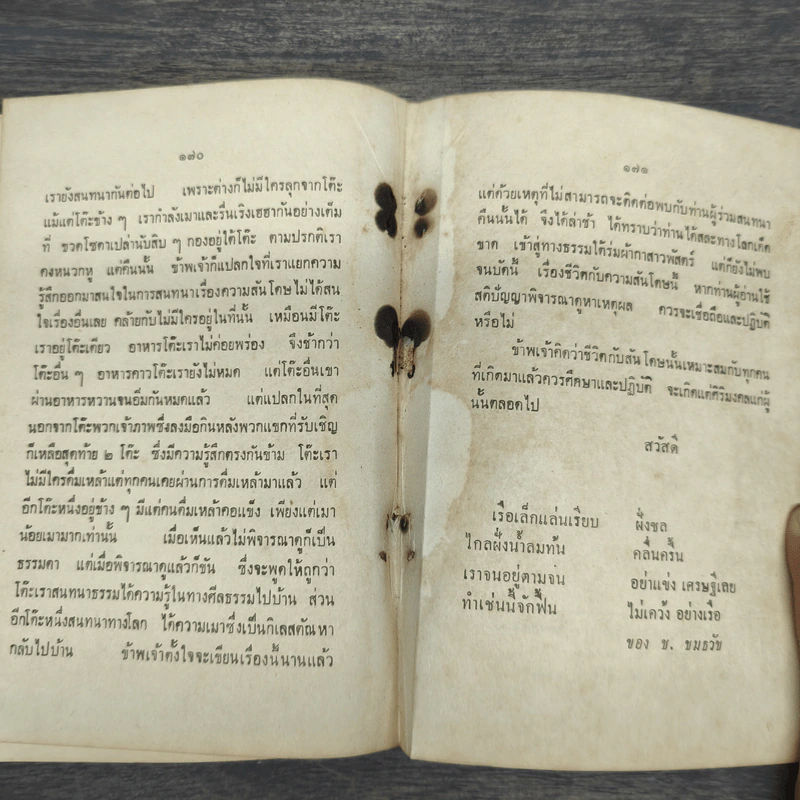 ๑๗๐
เรายังสนทนากันต่อไป เพราะต่างก็ไม่มีใครลุกจากโต๊ะ
แม้แต่โต๊ะข้าง ๆ เรากำลังเมาและรื่นเริงเฮฮากันอย่างเต็ม
ที่ ขวดโซดาเปล่านับสิบ ๆ กองอยู่ใต้โต๊ะ ตามปรกติเรา
คงหนวกหู แต่คืนนั้น ข้าพเจ้าก็แปลกใจที่เราแยกความ
รู้สึกออกมาสนใจในการสนทนาเรื่องความสันโดษไม่ได้สน
ใจเรื่องอื่นเลย คล้ายกับไม่มีใครอยู่ในที่นั้น เหมือนมีโต๊ะ
เราอยู่โต๊ะเดียว อาหารโต๊ะเราไม่ค่อยพร่อง จึงช้ากว่า
โต๊ะอื่น ๆ อาหารคาวโต๊ะเรายังไม่หมด แต่โต๊ะอื่นเขา
ผ่านอาหารหวานจนอิ่มกันหมดแล้ว แต่แปลกในที่สุด
นอกจากโต๊ะพวกเจ้าภาพซึ่งลงมือกินหลังพวกแขกที่รับเชิญ
ก็เหลือสุดท้าย ๒ โต๊ะ ซึ่งมีความรู้สึกตรงกันข้าม โต๊ะเรา
ไม่มีใครดื่มเหล้าแต่ทุกคนเคยผ่านการดื่มเหล้ามาแล้ว แต่
อีกโต๊ะหนึ่งอยู่ข้าง ๆ มีแต่คนดื่มเหล้าคอแข็ง เพียงแต่เมา
น้อยเมามากเท่านั้น เมื่อเห็นแล้วไม่พิจารณาดูก็เป็น
ธรรมดา แต่เมื่อพิจารณาดูแล้วก็ขัน ซึ่งจะพูดให้ถูกว่า
โต๊ะเราสนทนาธรรมได้ความรู้ในทางศีลธรรมไปบ้าน ส่วน
อีกโต๊ะหนึ่งสนทนาทางโลก ได้ความเมาซึ่งเป็นกิเลสตัณหา
กลับไปบ้าน ข้าพเจ้าตั้งใจจะเขียนเรื่องนี้นานแล้ว
๑๗๑
แต่ด้วยเหตุที่ไม่สามารถจะติดต่อพบกับท่านผู้ร่วมสนทนา
คืนนั้นได้ จึงได้ล่าช้า ได้ทราบว่าท่านได้สละทางโลกเด็ด
ขาด เข้าสู่ทางธรรมใต้ร่มผ้ากาสาวพัสตร์ แต่ก็ยังไม่พบ
จนบัดนี้ เรื่องชีวิตกับความสันโดษนี้ หากท่านผู้อ่านใช้
สติปัญญาพิจารณาดูหาเหตุผล ควรจะเชื่อถือและปฏิบัติ
หรือไม่
ข้าพเจ้าคิดว่าชีวิตกับสันโดษนั้นเหมาะสมกับทุกคน
ที่เกิดมาแล้วควรศึกษาและปฏิบัติ จะเกิดแต่ศิริมงคลแก่ผู้
นั้นตลอดไป
สวัสดี
เรือเล็กแล่นเรียบ ฝั่งชล
ไกลฝั่งน้ำลมท้น คลื่นครั้น
เราจนอยู่ตามจน อย่าแข่ง เศรษฐีเลย
ทำเช่นนี้จักฟื้น ไม่เคว้ง อย่างเรือ
ของ ช. ชมธวัช